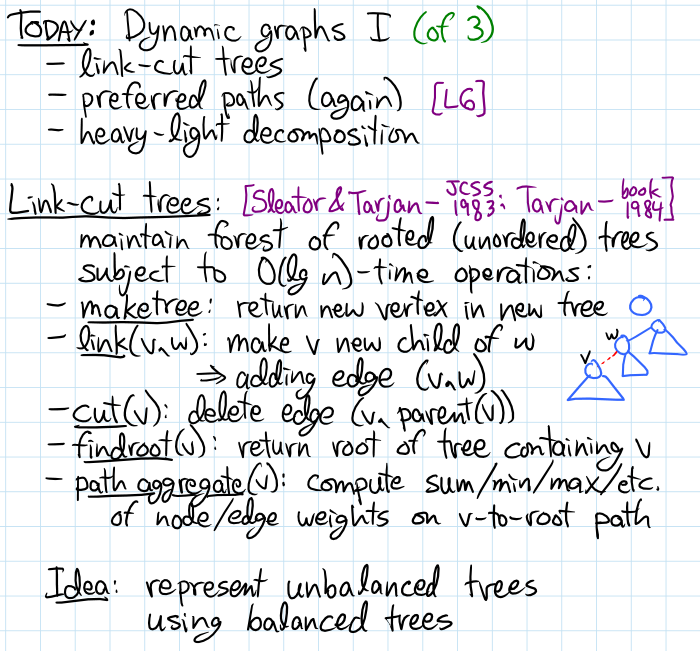 TODAY: Dynamic graphs I (of 3)
- link-cut trees
- preferred paths (again) [L6]
- heavy-light decomposition
Link-cut trees: [Sleator & Tarjan - JCSS 1983; Tarjan - book 1984]
maintain forest of rooted (unordered) trees
subject to O(lg n)-time operations:
- maketree: return new vertex in new tree
- link(v,w): make v new child of w
⇒ adding edge (v,w)
w
v
- cut(v): delete edge (v, parent(v))
- findroot(v): return root of tree containing v
- path aggregate(v): compute sum/min/max/etc.
of node/edge weights on v-to-root path
Idea: represent unbalanced trees
using balanced trees